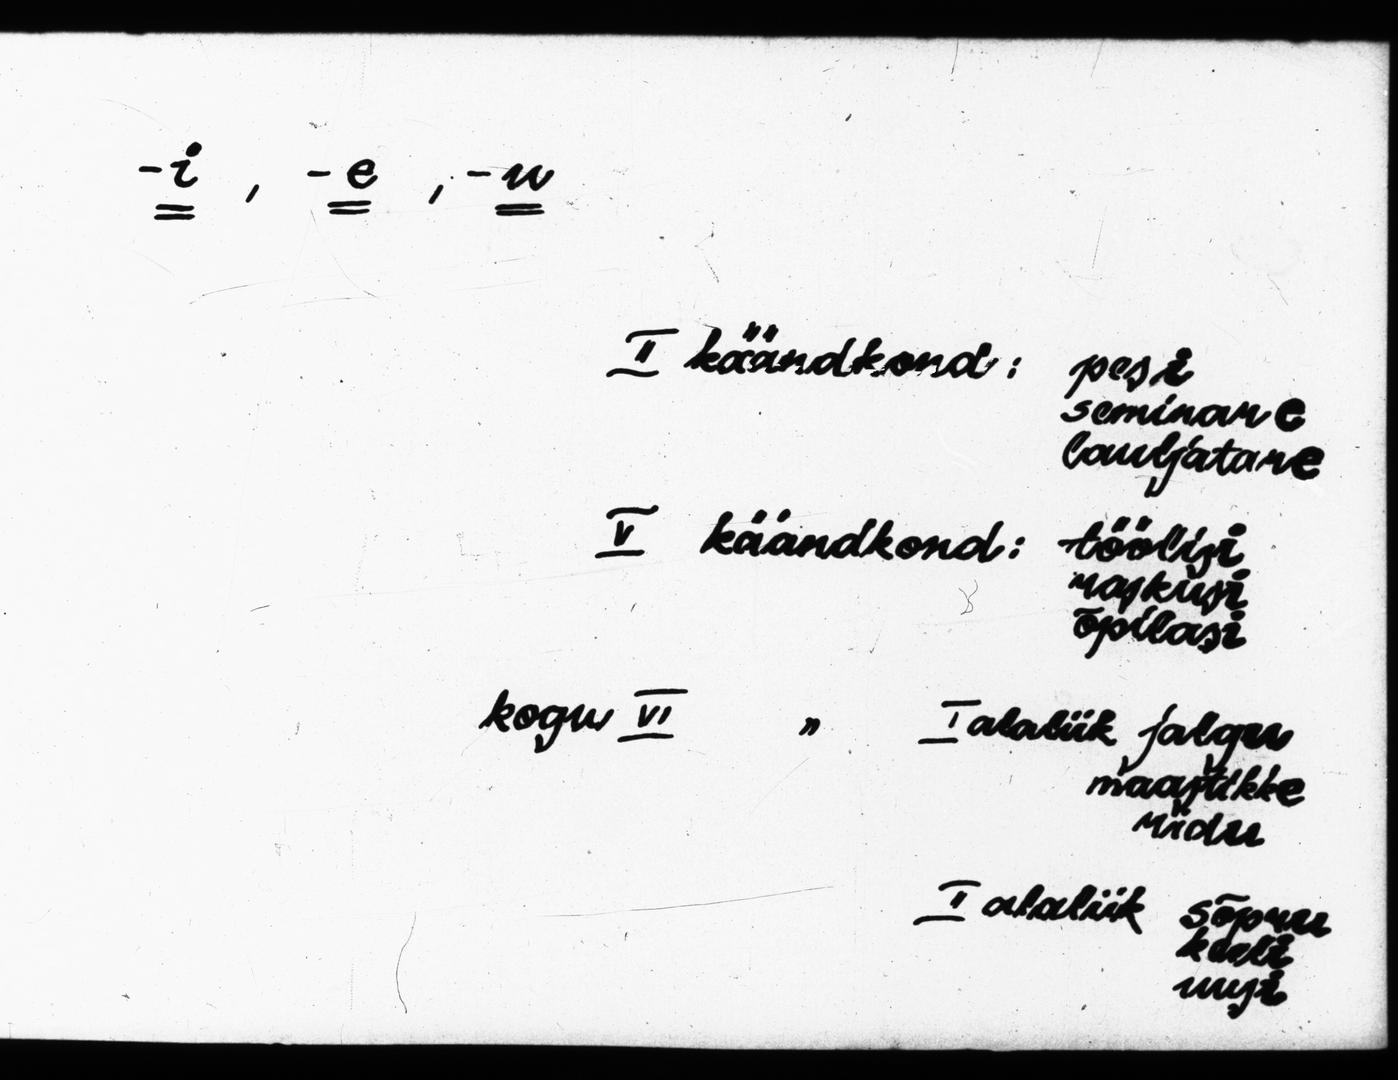 -i , -e , -u
II käändkond: pesi
seminare
lauljatare
V käändkond: töölisi
raskusi
õpilasi
kogu VI " I alaliik jalgu
maastikke
ridu
II alaliik sõpru
keeli
uusi